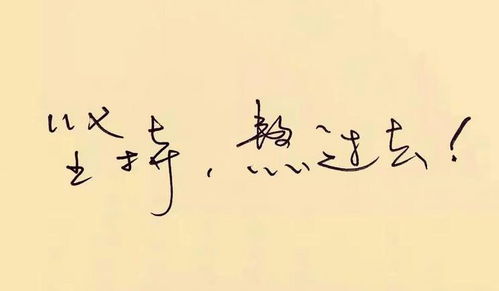 坚持,熬过去!